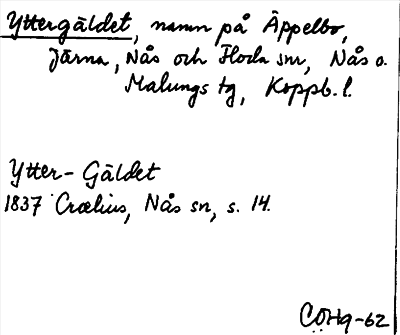 Yttergäldet, namn på Äppelbo,
Järna, Nås och Floda snr, Nås o.
Malungs tg, Koppb. l.
Ytter-Gäldet
1837 Crælius, Nås sn, s. 14.
CÖHq-62